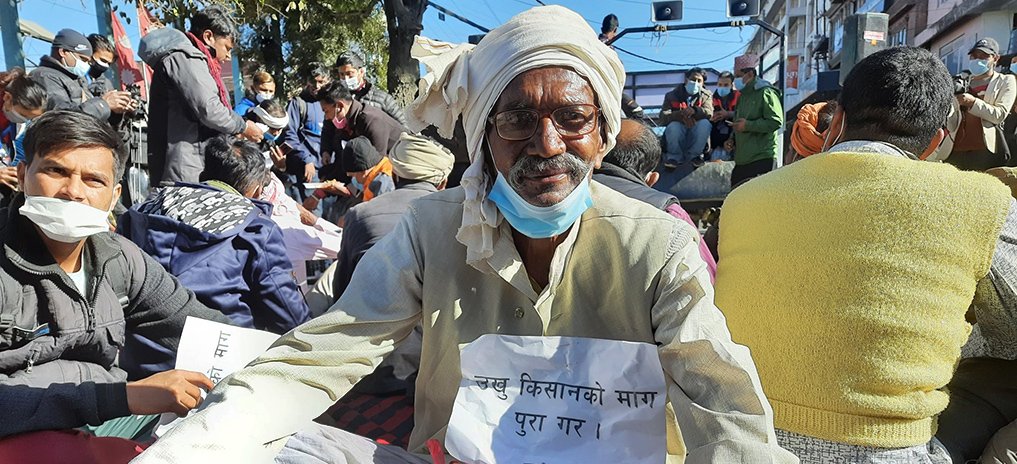 उखु किसानको माग
पुरा गर ।
को माग